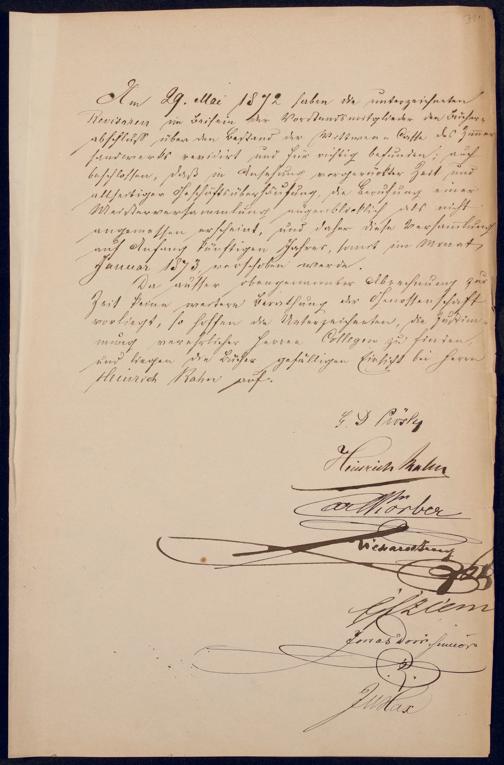 Am 29. Mai 1872 haben die unterzeichneten
Revisoren im Beisein der Vorstandsmitglieder den Bücher-
abschluss über den Bestand der Wittwen-Casse des Zimmer-
handwerks revidirt und für richtig befunden; auch
beschlossen, daß in Ansehung vorgerückter Zeit und
allseitiger Geschäftsüberhäufung, die Berufung einer
Meisterversammlung augenblicklich als nicht
angemessen erscheint, und daher diese Versammlung
auf Anfang künftigen Jahres, somit im Monat
Januar 1873, verschoben werde.
Da ausser obengenannter Abrechnung zur
Zeit keine weitere Berathung der Genossenschaft
vorliegt, so hoffen die Unterzeichneten, die Zustim-
mung verehrlicher Herren Collegen zu finden,
und liegen die Bücher gefälligen Einsicht bei Herrn
Heinrich Rahn auf.
Heinrich Rahn
Körber
Jonas Dörr junior